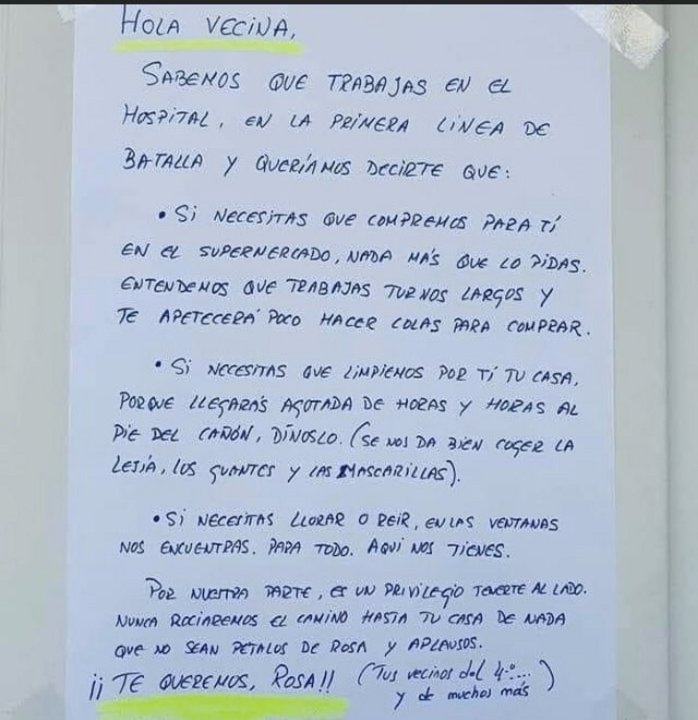 HOLA VECINA,
SABEMOS QUE TRABAJAS EN EL
HOSPITAL, EN LA PRIMERA LINEA DE
BATALLA Y QUERÍAMOS DECIRTE QUE:
• Si NECESITAS QUE COMPREMOS PARA TÍ
EN EL SUPERMERCADO, NADA MÁS QUE LO PIDAS.
ENTENDEMOS QUE TRABAJAS TURNOS LARGOS Y
TE APETECERÁ POCO HACER COLAS PARA COMPRAR.
• Si NECESITAS QUE LIMPIEMOS POR TÍ TU CASA,
PORQUE LLEGARÁS AGOTADA DE HORAS Y HORAS AL
PIE DEL CAÑÓN, DÍNOSLO. (SE NOS DA BIEN COGER LA
LEJÍA, LOS GUANTES Y LAS MASCARILLAS).
• Si NECESITAS LLORAR O REIR, EN LAS VENTANAS
NOS ENCUENTRAS. PARA TODO. AQUÍ NOS TIENES.
POR NUESTRA PARTE, ES UN PRIVILEGIO TENERTE AL LADO.
NUNCA ROCIAREMOS EL CAMINO HASTA TU CASA DE NADA
QUE NO SEAN PETALOS DE ROSA Y APLAUSOS.
¡¡TE QUEREMOS, ROSA!! (Tus vecinos del 4º...
y de muchos más)